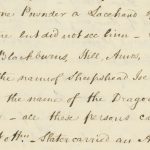 one Pounder a Lacehand
but did not see him
Blackburns, Hill, Arms,
the name of Sheepshead Joe
the name of the Drago
all these persons ca
Slater carried an A